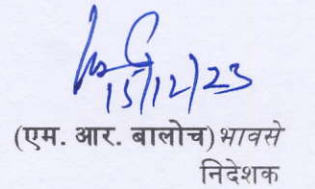 15/12/23
(एम. आर. बालोच) भावसे
निदेशक